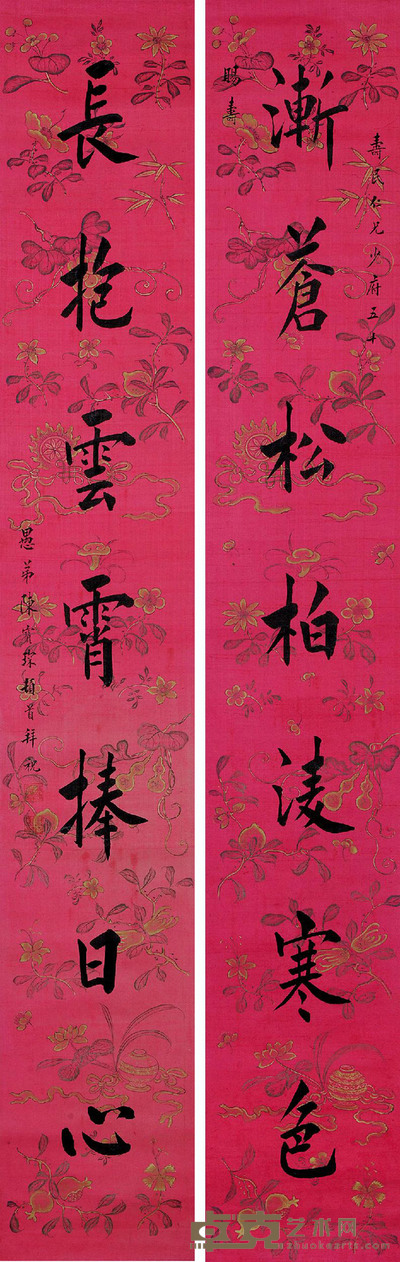 壽民仁兄少府五十
漸蒼松柏淩寒色
賜壽
長抱雲霄捧日心
愚弟陳寶琛頓首拜祝
艺术网